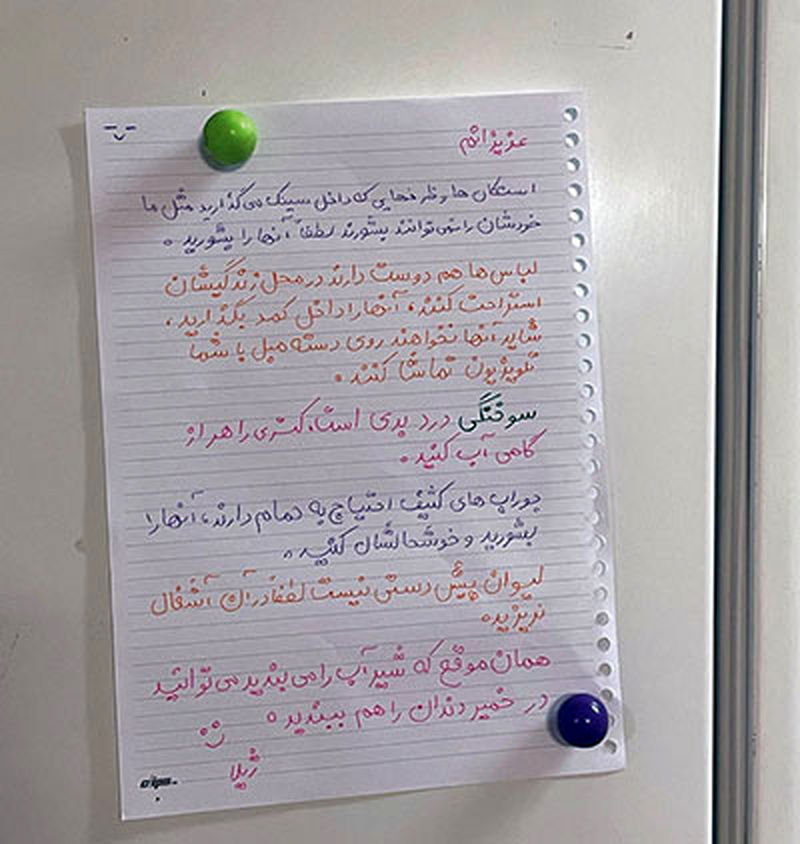 عزیزانم
استکان ها و ظرفهایی که داخل سینک می گذارید مثل ما
خودشان را نمی توانند بشورند لطفاً آنها را بشورید.
لباس ها هم دوست دارند در محل زندگیشان
استراحت کنند، آنها را داخل کمد بگذارید،
شاید آنها نخواهند روی دسته مبل با شما
تلویزیون تماشا کنند.
سوختگی درد بدی است، کتری را هر از
گاهی آب کنید.
جوراب های کثیف احتیاج به حمام دارند، آنها را
بشورید و خوشحالشان کنید.
لیوان پیش دستی نیست لطفا در آن آشغال
نریزید.
همان موقع که شیر آب را می بندید می توانید
در خمیر دندان را هم ببندید.
ژیلا
clips